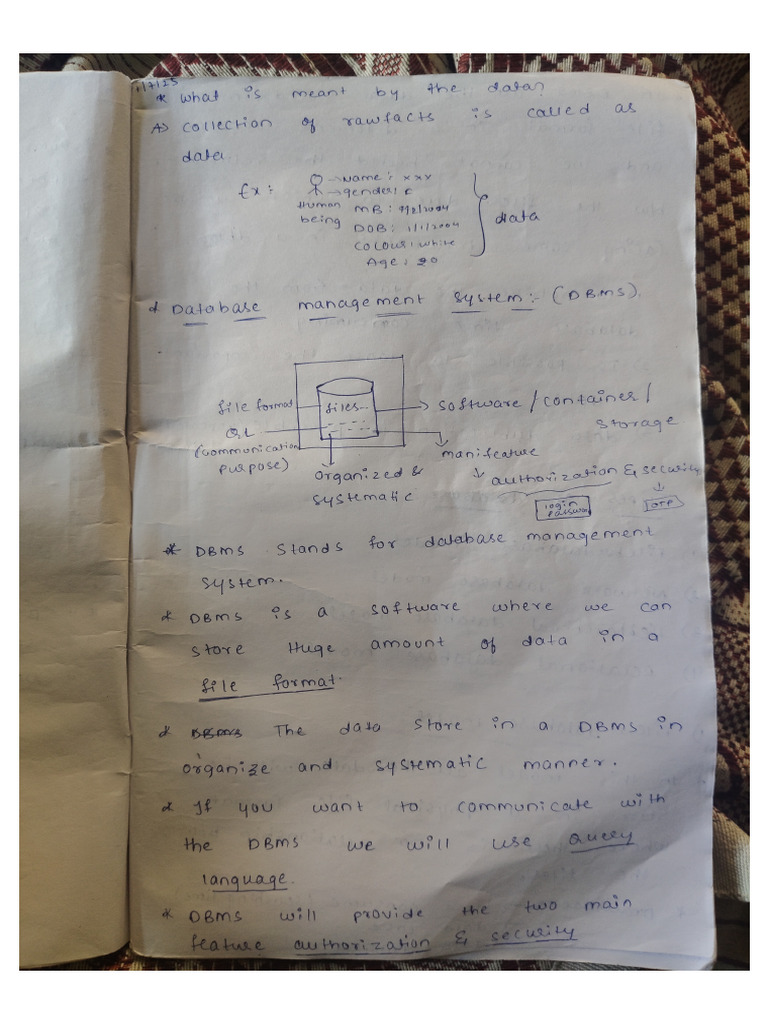 1/7/25
* What is meant by the data?
A) collection of rawfacts is called as
data.
Ex: Name: xxx
gender:
Human MB:
being DOB: 1/1/2004
Colour: white
Age: 20
data
* Database management system:- (DBMS).
file format files... software / container /
storage
QL
(communication
purpose)
manifeature
organized &
systematic
authorization & security
login
password
OTP
* DBMS stands for database management
system.
* DBMS is a software where we can
store Huge amount of data in a
file format.
* DBMS The data store in a DBMS in
organize and systematic manner.
* If you want to communicate with
the DBMS we will use Query
language.
* DBMS will provide the two main
feature authorization & security